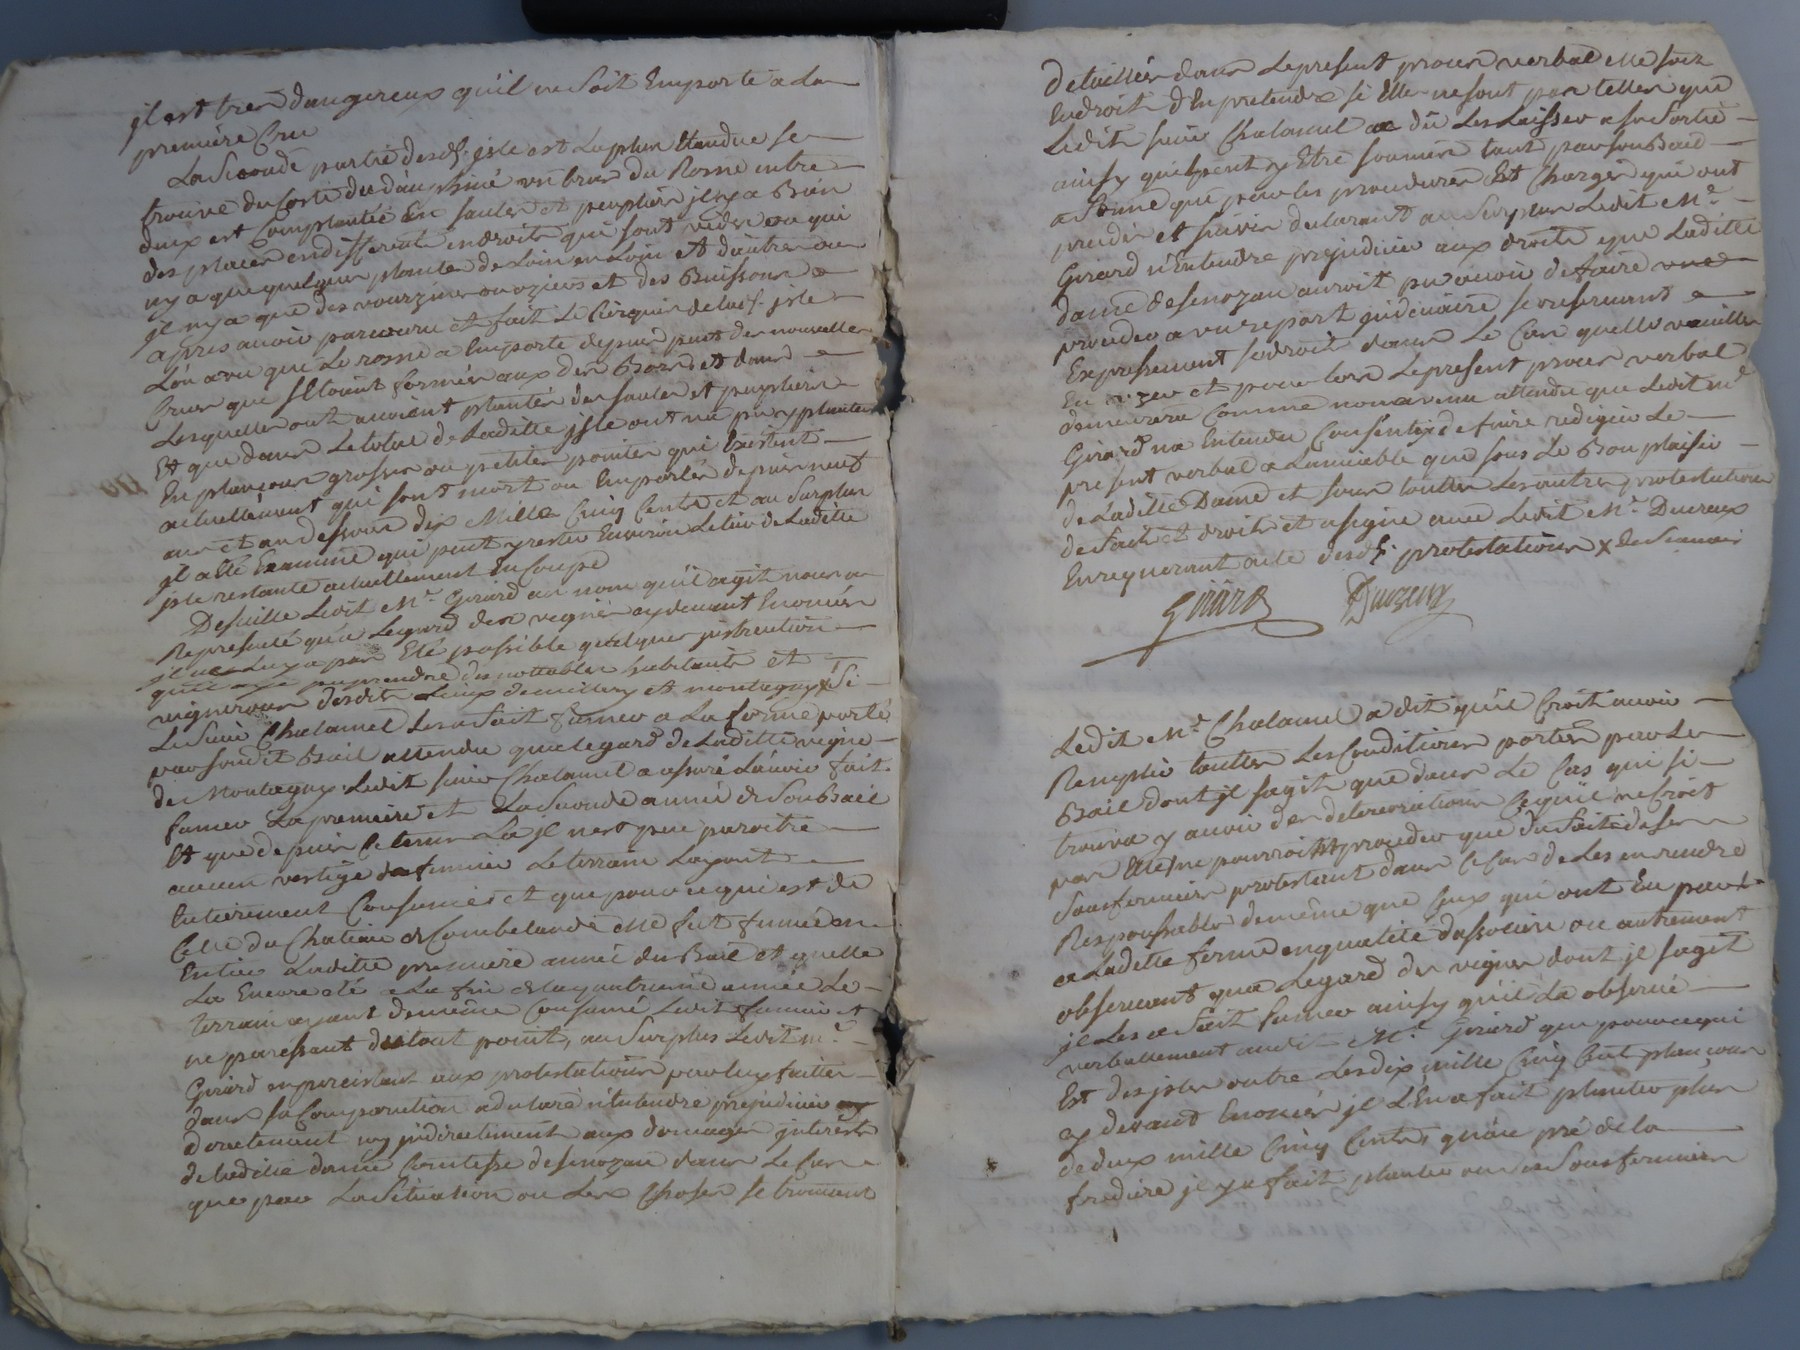 jl est tres dangereux qu'il ne soit Emporté a la
première Crue
La Seconde partie desd. isle est la plus Etendue se
trouve du Costé du dauphiné un bras du Rosne entre
deux est Complantée En saules et peupliers jl y a Bien
des places en differents endroits qui sont vuides ou qui
n'y a que quelques plantes de Loin en Loin et d'autres ou
jl n'y a que des vourgines ou oziers et des Buissons
apres avoir parcouru et fait Le Cirquit de lad. isle
L'on a vu que Le rosne a Emporté depuis peu des nouvelles
Crues que s'Etoient formées aux des Bords et dans
Lesquelles ont avoient plantés des saules et peupliers
Et que dans Le total de Laditte jsle ont na pu y planter
En plançons grosses ou petites pointes qui Existent
actuellement qui sont mort ou Emportés depuis neuf
ans et au dessous dix Mille Cinq Cents et au Surplus
jl a été Examiné qui peut y rester Environ Le tier de Laditte
jsle restante actuellement En Coupe
De suitte Ledit Mr. Girard au nom qu'il agit nous a
Representé qu'a Legard des vignes cy devant Enoncés
jl ne Luy a pas Eté possible quelques instruction
qu'il aye pu prendre des nottables habitants et
vignerons desdits Lieux de millery et montagny x Si
Le Sieur Chalamel Les a fait fumer a La forme porté
par sondit Bail attendu qu'a legard de Laditte vigne
de Montagny Ledit sieur Chalamel a assuré L'avoir fait
fumer La premiere et La Seconde année de Son Bail
Et que depuis Ce tems La jl n'est peu paroitre
aucun vestige de fumier Le terrain Layant
Entierement Consumé et que pour ce qui est de
Celle du Chateau de Combelande elle fut fumée en
Entier Laditte premiere année du Bail et quelle
La Encore eté a La fin de la quatrieme année Le
terrain ayant de même Consumé Ledit fumier et
ne paressant du tout point, au Surplus Ledit Mr.
Girard en percistant aux protestations par luy faittes
dans sa Comparution a declaré n'Entendre prejudicier
directement ny jndirectement aux domages jnterests
de laditte dame Comtesse de senozan dans Le Cas
que par La Situation ou Les Choses se trouvent
detaillées dans Le present procès verbal elle soit
En droit d'En pretendre si Elle ne sont pas telles que
Ledit sieur Chalamel a du Les Laisser a sa Sortie
ainsy qu'il peut y Etre soumis tant par son Bail
a ferme que par les procedures Et Charges qui ont
preceder et suivis declarant au Surplus Ledit Mr.
Girard n'Entendre prejudicier aux droits que Laditte
dame de senozan auroit pu avoir de faire
proceder a un report judiciaire se reservant
Expressement se droit dans Le Cas quelle veuille
En user et pour lors Le present procès verbal
demeurera Comme non avenu attendu que Ledit mr
Girard na Entendu Consentir de faire rediger Le
present verbal a L'amiable que sous Le Bon plaisir
de Laditte Dame et sous touttes Les autres protestations
de fait et droits et a signé avec Ledit Mr. Ducreux
En requerant acte desd. protestations x de Scavoir
Girard Ducreux
Ledit Mr. Chalamel a dit qu'il Croit avoir
Remplir touttes Les Conditions portés par Le
Bail dont jl s'agit que dans Le Cas qui si
trouva y avoir des deteriorations Ce qu'il ne Croit
pas Elle ne pourroient proceder que du fait de ses
Sousfermiers protestant dans Ce Cas de Les en rendre
Responsables de même que Ceux qui ont Eu part
a Laditte ferme en qualité d'associés ou autrement
observant qu'a Legard des vignes dont jl sagit
jl Les a fait fumer ainsy qu'il La observé
verbalement audit Mr. Girard que pour ce qui
Est des jsles outre Les dix mille Cinq Cent plançons
cy devant Enoncés jl L'En a fait planter plus
de deux mille Cinq Cents, qu'au pré de la
frediere jl y a fait planter ou ses Sousfermiers